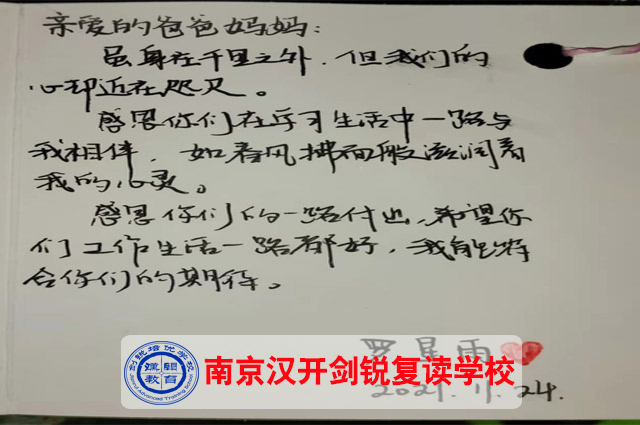 亲爱的爸爸妈妈:
虽身在千里之外,但我们的
心却近在咫尺。
感恩你们在学习生活中一路与
我相伴,如春风拂面般滋润着
我的心灵。
感恩你们的一路付出,希望你
们工作生活一路都好,我能符
合你们的期待。
罗星雨
南京汉开剑锐复读学校
剑锐培优学校
汉开
教育
2021.11.24.